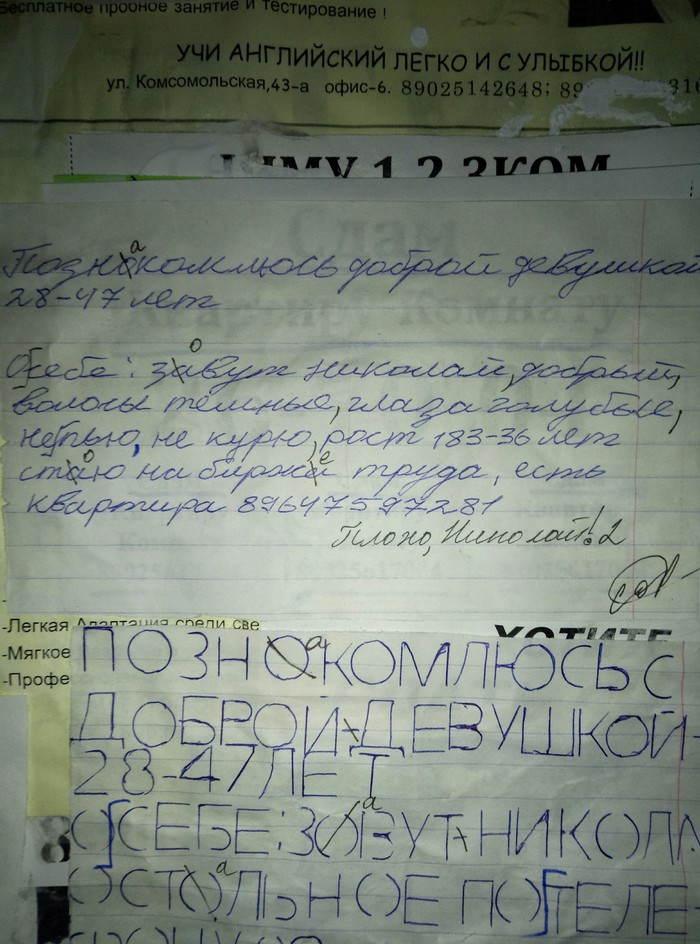 Бесплатное пробное занятие и тестирование !
УЧИ АНГЛИЙСКИЙ ЛЕГКО И С УЛЫБКОЙ!!
ул. Комсомольская,43-а офис-6. 89025142648;
1 2 3КОМ
Сдам
Квартиру Комнату
а
Познокомлюсь доброй девушкой
28-47 лет
о
О себе: завут николай, добрый,
волосы темные, глаза голубые,
не пью, не курю, рост 183-36 лет
о е
стаю на биржа труда, есть
квартира 89647597281
Плохо, Николай! 2
-Легкая Адаптация среди све
ХОТИТЕ
-Мягкое
-Профе
а
ПОЗНОКОМЛЮСЬ С
ДОБРОЙ-ДЕВУШКОЙ-
28-47 ЛЕТ
а
О СЕБЕ: ЗОВУТ-НИКОЛА
а
ОСТОЛЬНОЕ ПО ТЕЛЕ-